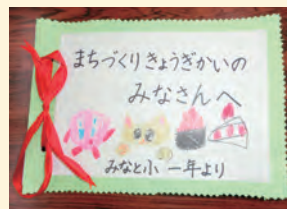 まちづくりきょうぎかいの
みなさんへ
みなと小 一年より